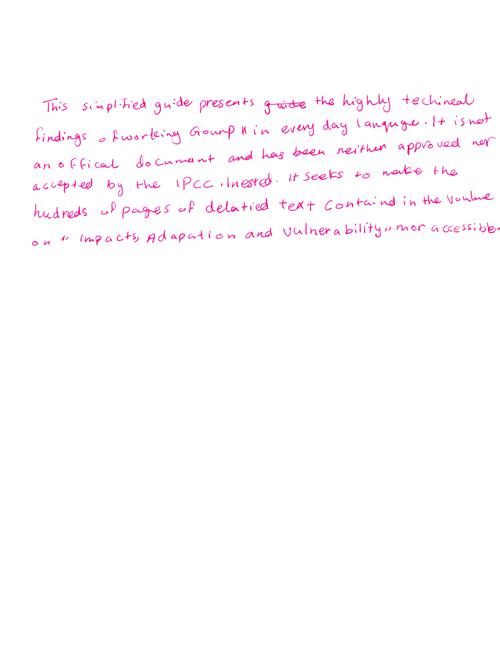 This simplified guide presents guide the highly techineal
findings of working Giounp II in every day languge. It is not
an offical document and has been neither approved nor
accepted by the IPCC. Inested. It seeks to make the
hudreds of pages of delatied text Containd in the Voulme
on "Impacts, Adapation and Vulnerability" mor accessible.